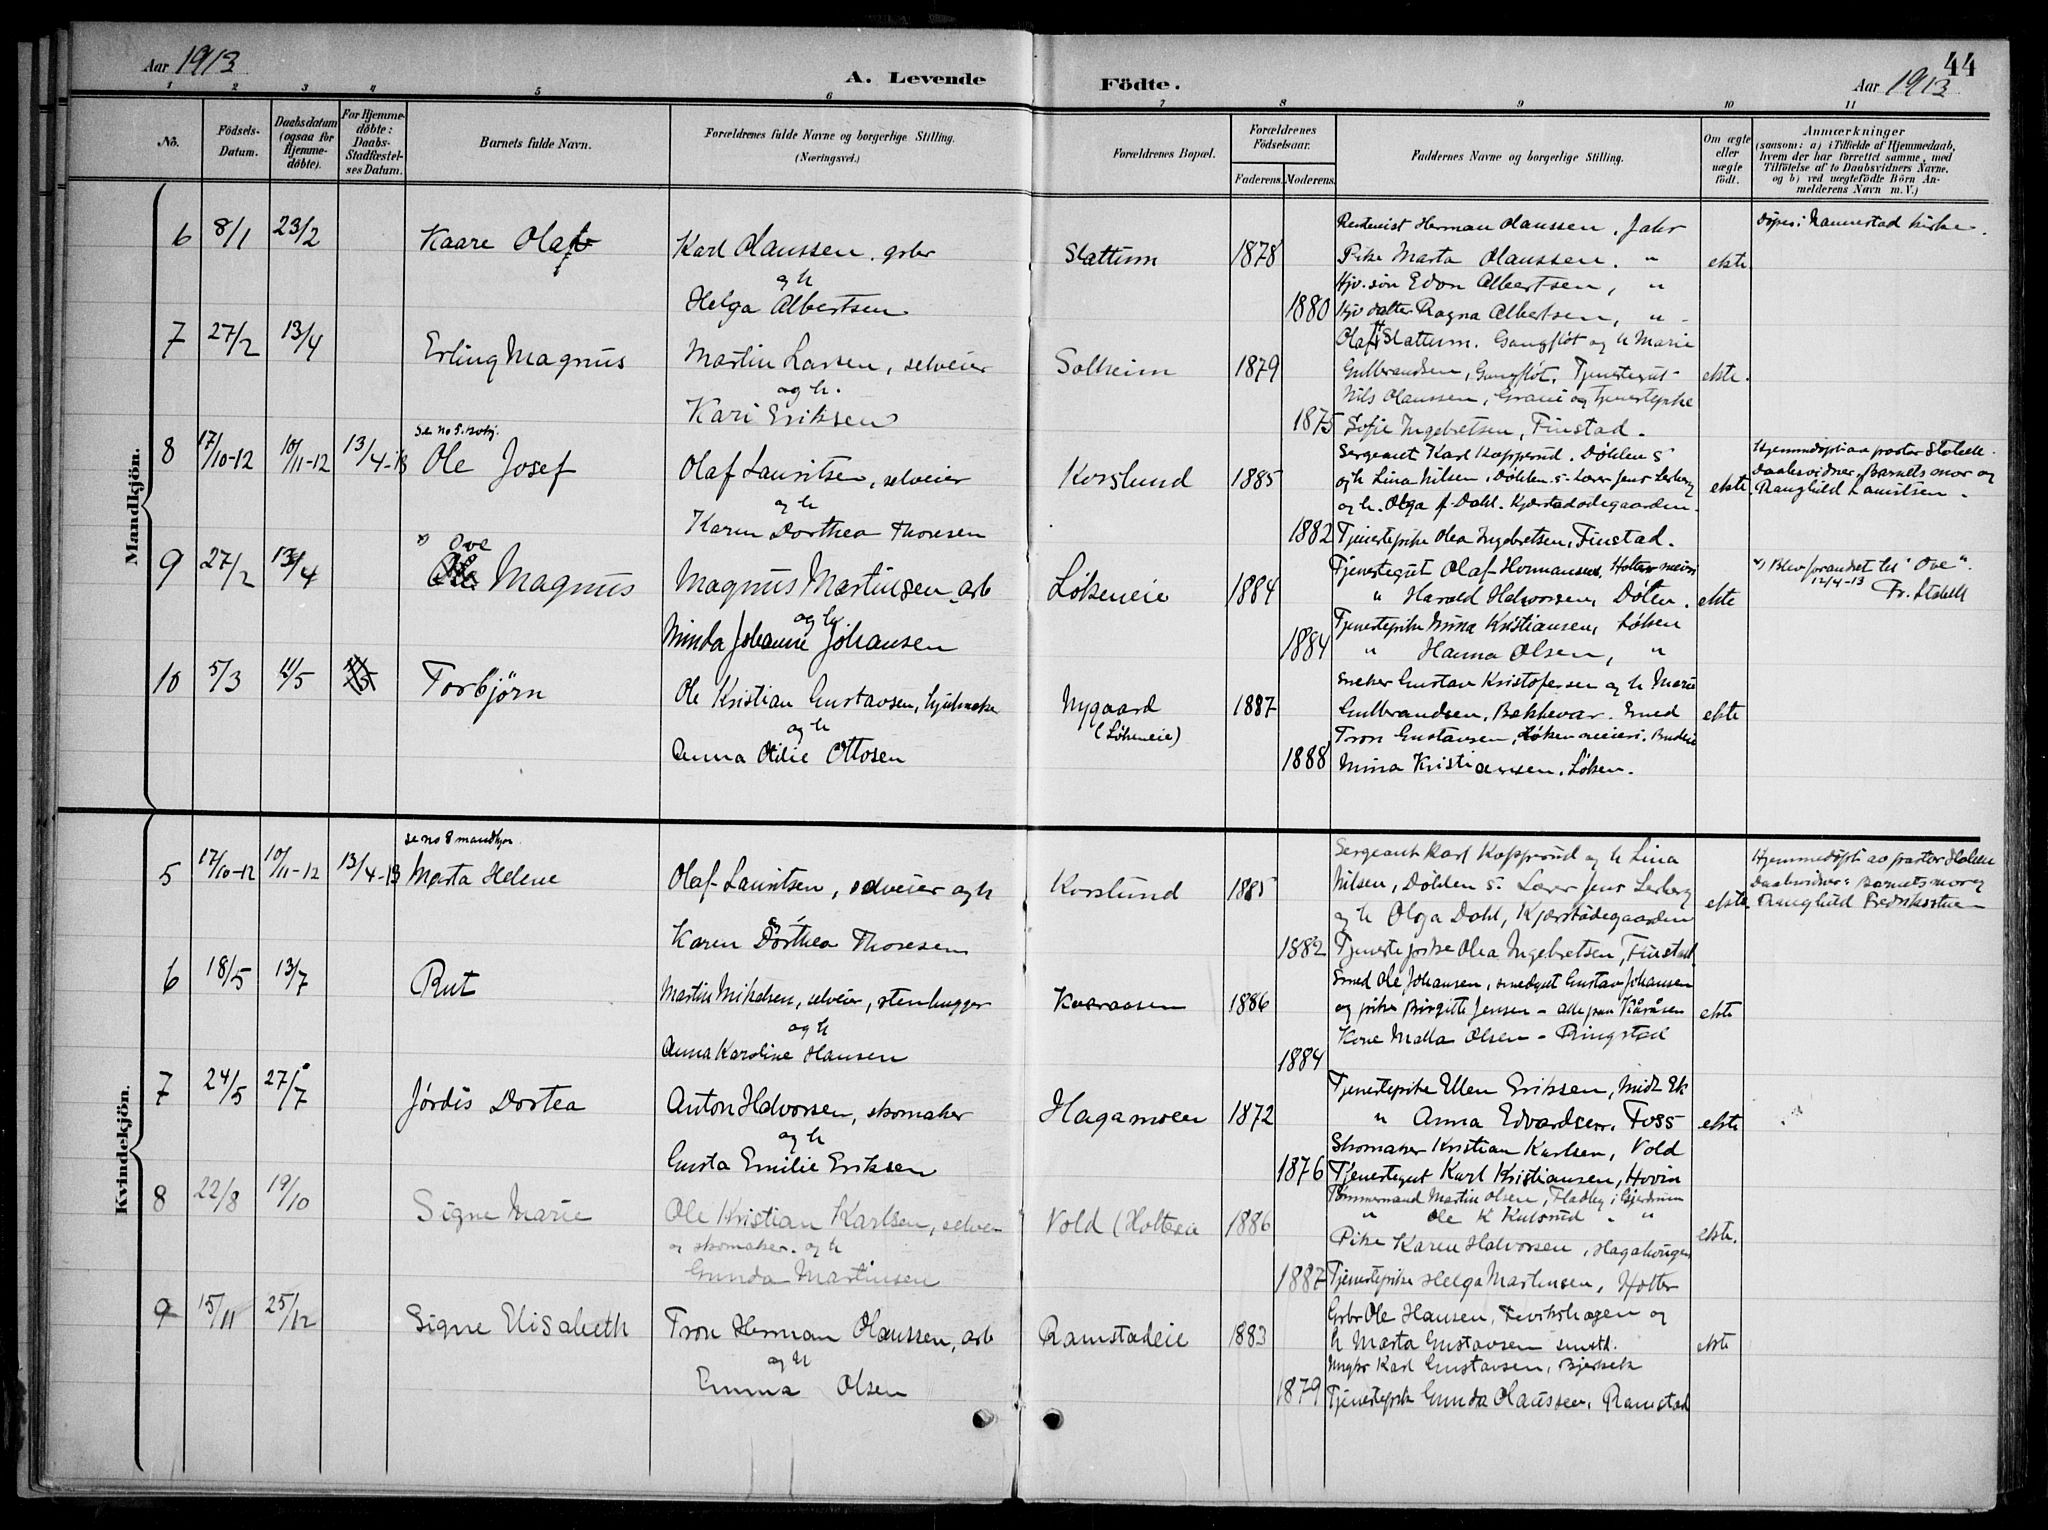 44
Aar 1913
A. Levende
Födte.
Aar 1913
1 2 3 4 5 6 7 8 9 10 11
No.
Födsels-Datum.
Daabsdatum (ogsaa for Hjemmedöbte).
For Hjemmedöbte: Daabs-Stadfæstelses Datum.
Barnets fulde Navn.
Forældrenes fulde Navne og borgerlige Stilling.
(Næringsvei.)
Forældrenes Bopæl.
Forældrenes Födselsaar.
Faderens. Moderens.
Faddernes Navne og borgerlige Stilling.
Om ægte eller uægte födt.
Anmærkninger
(saasom: a) i Tilfælde af Hjemmedaab, hvem der har forrettet samme, med Tilföielse af to Daabsvidners Navne, og b) ved uægtefödte Börn Anmelderens Navn m. V.)
Mandkjön.
6 8/1 23/2 Kaare Olaf
Karl Olaussen. grbr
og h
Helga Albertsen
Slattum 1878 1880
Herman Olaussen. Jahr
Pike Marta Olaussen. "
Gbr. søn Edvn Albertsen, "
datter Ragna Albertsen, "
ekte
Døpt i Nannestad kirke.
7 27/2 13/4 Erling Magnus
Martin Larsen, selveier
og h.
Kari Eriksen
Solheim 1879 1875
Olaf Slattum. Gangfløt og h Marie
Gulbrandsen, Gangfløt, Tjenestegut
Nils Olaussen, og tjenestepike
Sofie Ingebretsen, Finstad.
ekte.
8 17/10-12 10/11-12 13/4-13
se no 5.
Ole Josef
Olaf Lauritsen, selveier
og h
Karen Dorthea Thoresen
Korslund 1885 1882
Sergeant Karl Kopperud. Døhlen s
og h Lina Nilsen, Døhlen s. Lærer Jens Lerberg
og h. Olga f. Dahl. Kjærstadødegaarden.
Tjenestepike Olea Ingebretsen, Finstad.
ekte
Hjemmedøpt av pastor
Daabsvidner, Barnets mor og
Ranghild Lauritsen.
9 27/2 13/4
x) Ove
Ole Magnus
Magnus Martinsen, arb
og h
Minda Johanne Johansen
Løkeneie 1884 1884
Tjenestegut Olaf Hermansen, Holter meieri
" Harald Halvorsen, Døhlen.
Tjenestepike Mina Kristiansen, Løken
" Hanna Olsen, "
ekte
x) Blev forandret til "Ove".
12/4-13
10 5/3 11/5 11/5 Torbjörn
Ole Kristian Gustavsen, hjulmaker
og h
Anna Otilie Ottosen
Nygaard
(Løkeneie)
1887 1888
Snekker Gustav Kristofersen og h Marie
Gulbrandsen, Bakkevar. Smed
Tron Gustavsen, Løken meieri. Budeie
Mina Kristiansen. Løken.
ekte
Kvindekjön.
5 17/10-12 10/11-12 13/4-13
se no 8 mandkjøn
Marta Helene
Olaf Lauritsen, selveier og h
Karen Dorthea Thoresen
Korslund 1885 1882
Sergeant Karl Kopperud og h Lina
Nilsen, Døhlen s. Lærer Jens Lerberg
og h Olga Dahl, Kjærstadødegaarden
Tjenestepike Olea Ingebretsen, Finstad.
ekte.
Hjemmedøpt av pastor
Daabsvidner: Barnets mor og
Ranghild Fredriksstuen
6 18/5 13/7 Rut
Martin Mikelsen, selveier, stenhugger
og h
Anna Karoline Hansen
Kaaraasen 1886 1884
Smed Ole Johansen, smedgut Gustav Johansen
og pike Birgitte Jensen - alle paa Kåråsen
Kone Matta Olsen - Ringstad
ekte
7 24/5 27/7 Jórdis Dortea
Anton Halvorsen, skomaker
og h
Gusta Emilie Eriksen
Hagamoen 1872 1876
Tjenestepike Ellen Eriksen, Midt Ek
" Anna Edvardsen, Foss
Skomaker Kristian Karlsen, Vold
Tjenestegut Karl Kristiansen, Hovin
ekte
8 22/8 19/10 Signe Marie
Ole Kristian Karlsen, selveier
og skomaker. og h
Gunda Martinsen
Vold (Holtereie 1886 1887
Tømmermand Martin Olsen, Fladby i Gjerdrum
" Ole K Kulsrud " "
Pike Karen Halvorsen, Hagahøugen
Tjenestepike Helga Martinsen, Holter
ekte.
9 15/11 25/12 Signe Elisabeth
Tron Herman Olaussen, arb
og h
Emma Olsen
Ramstadeie 1883 1879
Grbr Ole Hansen, og
h Marta Gustavsen smstd.
Ungkr Karl Gustavsen, Bjerkeek
Tjenestepike Gunda Olaussen, Ramstad
ekte